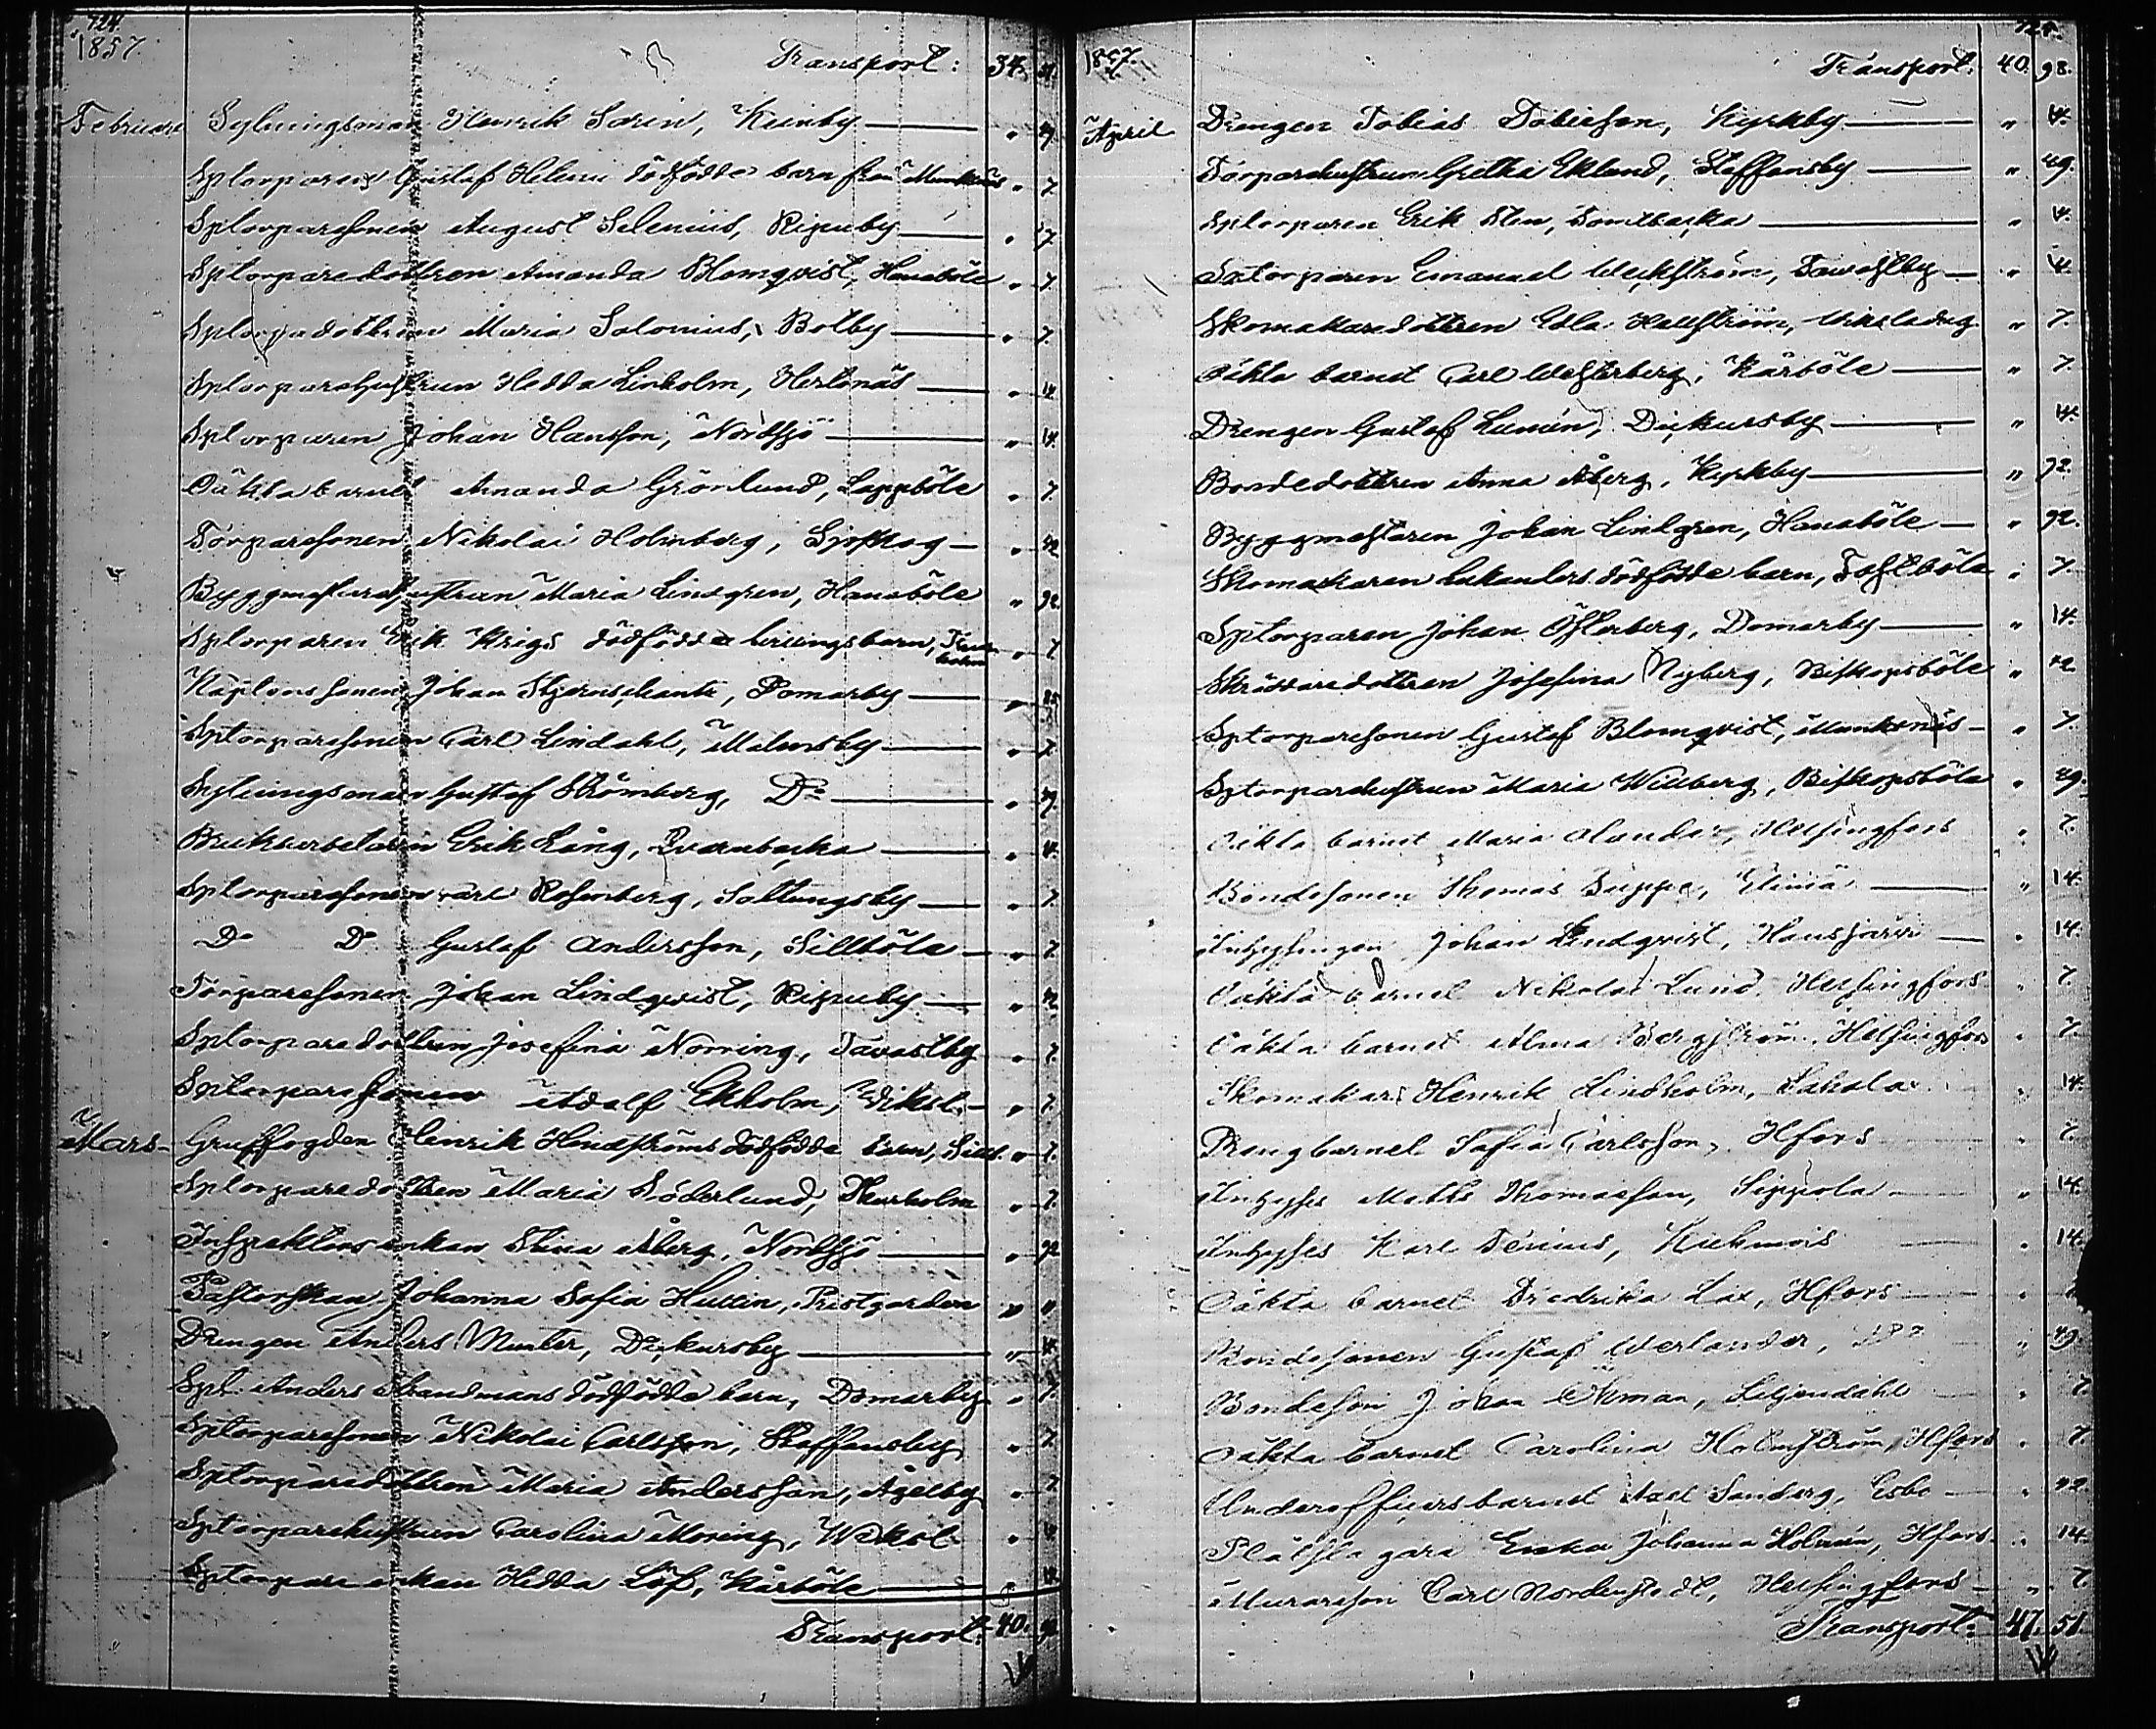 724.
1857.
Transport: 34.
Februari Sytningsman Henrik Sorin,
Sptorparen Gustaf Helenii dödfödde barn från Munknäs " 7.
Sptorparesonen August Selenius, Ripuby " 7
Sptorparedottren Amanda Blomqvist, Hanaböle " 7.
Maria Solonius, Botby " 7.
Sptorparehustrun Hedda Linholm, Hertonäs " 14
Sptorparen Johan Hansson, Nordsjö " 14.
Oäkta barnet Amanda Grönlund, Lappböle " 7.
Torparesonen Nikolai Holmberg, Sjöskog "
Byggmästarehustrun Maria Lindgren, Hanaböle " 92
Sptorparen Erik Krigs dödfödde " 7
Kaplanssonen Johan Stjernschantz, Domarby
Sptorparesonen Carl Lindahl, Malmsby " 7.
Sytningsman Gustaf Strömberg, Do
Erik Lång, Qvarnbacka " 14.
Sptorparesonen Carl Rosenberg, Sottungsby " 7.
Do Do Gustaf Andersson, Sillböle " 7.
Torparesonen Johan Lindqvist, Ripuby "
Sptorparedottren Josefina Norring, Tavastby " 7.
Sptorparesonen Adolf Ekholm, " 7.
Mars Gruffogden Henrik Hindströms dödfödda barn, Sillb. " 7.
Sptorparedottren Maria Söderlund, Thurholm " 7.
Inspektorsenkan Stina Åberg, Nordsjö " 92
Pastorskan Johanna Sofia Huttin, Prestgården "
Drengen Anders Munter, Dickursby " 14.
Spt. Anders Strandmans dödfödde barn, Domarby " 7.
Sptorparesonen Nikolai Carlsson, Staffansby " 7.
Sptorparedottren Maria Andersson, Ågelby " 7
Sptorparehustrun Carolina Moring, "
Sptorpareenkan Hedda Löf, Kårböle "
Transport: 40.
1857.
Transport: 40. 98.
April Drengen Tobias Tobiesson, Kyrkby " 14.
Torparehustrun Gretha Eklund, Staffansby " 49.
Sptorparen Erik Sten, Tomtbacka " 14.
Sptorparen Emanuel Weckström, Tavastby " 14.
Skomakaredottren Edla Hallström, " 7.
Oäkta barnet Carl Westerberg, Kårböle " 7.
Drengen Gustaf Lunin, Dickursby " 14.
Bondedottren Anna Åberg, Kyrkby " 92.
Byggmästaren Johan Lindgren, Hanaböle " 92.
Skomakaren dödfödde barn, Tolkböle " 7.
Sptorparen Johan Österberg, Domarby " 14.
Skräddaredottren Josefina Nyberg, Biskopsböle "
Sptorparesonen Gustaf Blomqvist, Munksnäs " 7.
Sptorparehustrun Maria Willberg, Biskopsböle " 49.
Oäkta barnet Maria Olander, Helsingfors " 7.
Bondesonen Thomas Suppe, Elimä " 14.
Inhysingen Johan Lindqvist, Hausjärvi " 14.
Oäkta barnet Nikolai Lund, Helsingfors " 7.
Oäkta barnet Alma Bergström, Helsingfors " 7.
Skomakar Henrik Lindholm, " 14.
Drengbarnet Sofia Carlsson, Hfors " 7.
Inhyses Matts Thomasson, Sippola " 14.
Inhyses Karl Tenius, " 14.
Oäkta barnet Fredrika Lax, Hfors "
Bondesonen Gustaf Werlander, " 49.
Bondeson Johan Öhman, Liljendahl " 7.
Oäkta barnet Carolina Holmström, Hfors " 7.
Underofficersbarnet Axel Sandberg, Esbo "
Erika Johanna Holmén, Hfors " 14.
Murareson Carl Nordenstedt, Helsingfors " 7.
Transport: 47. 51.